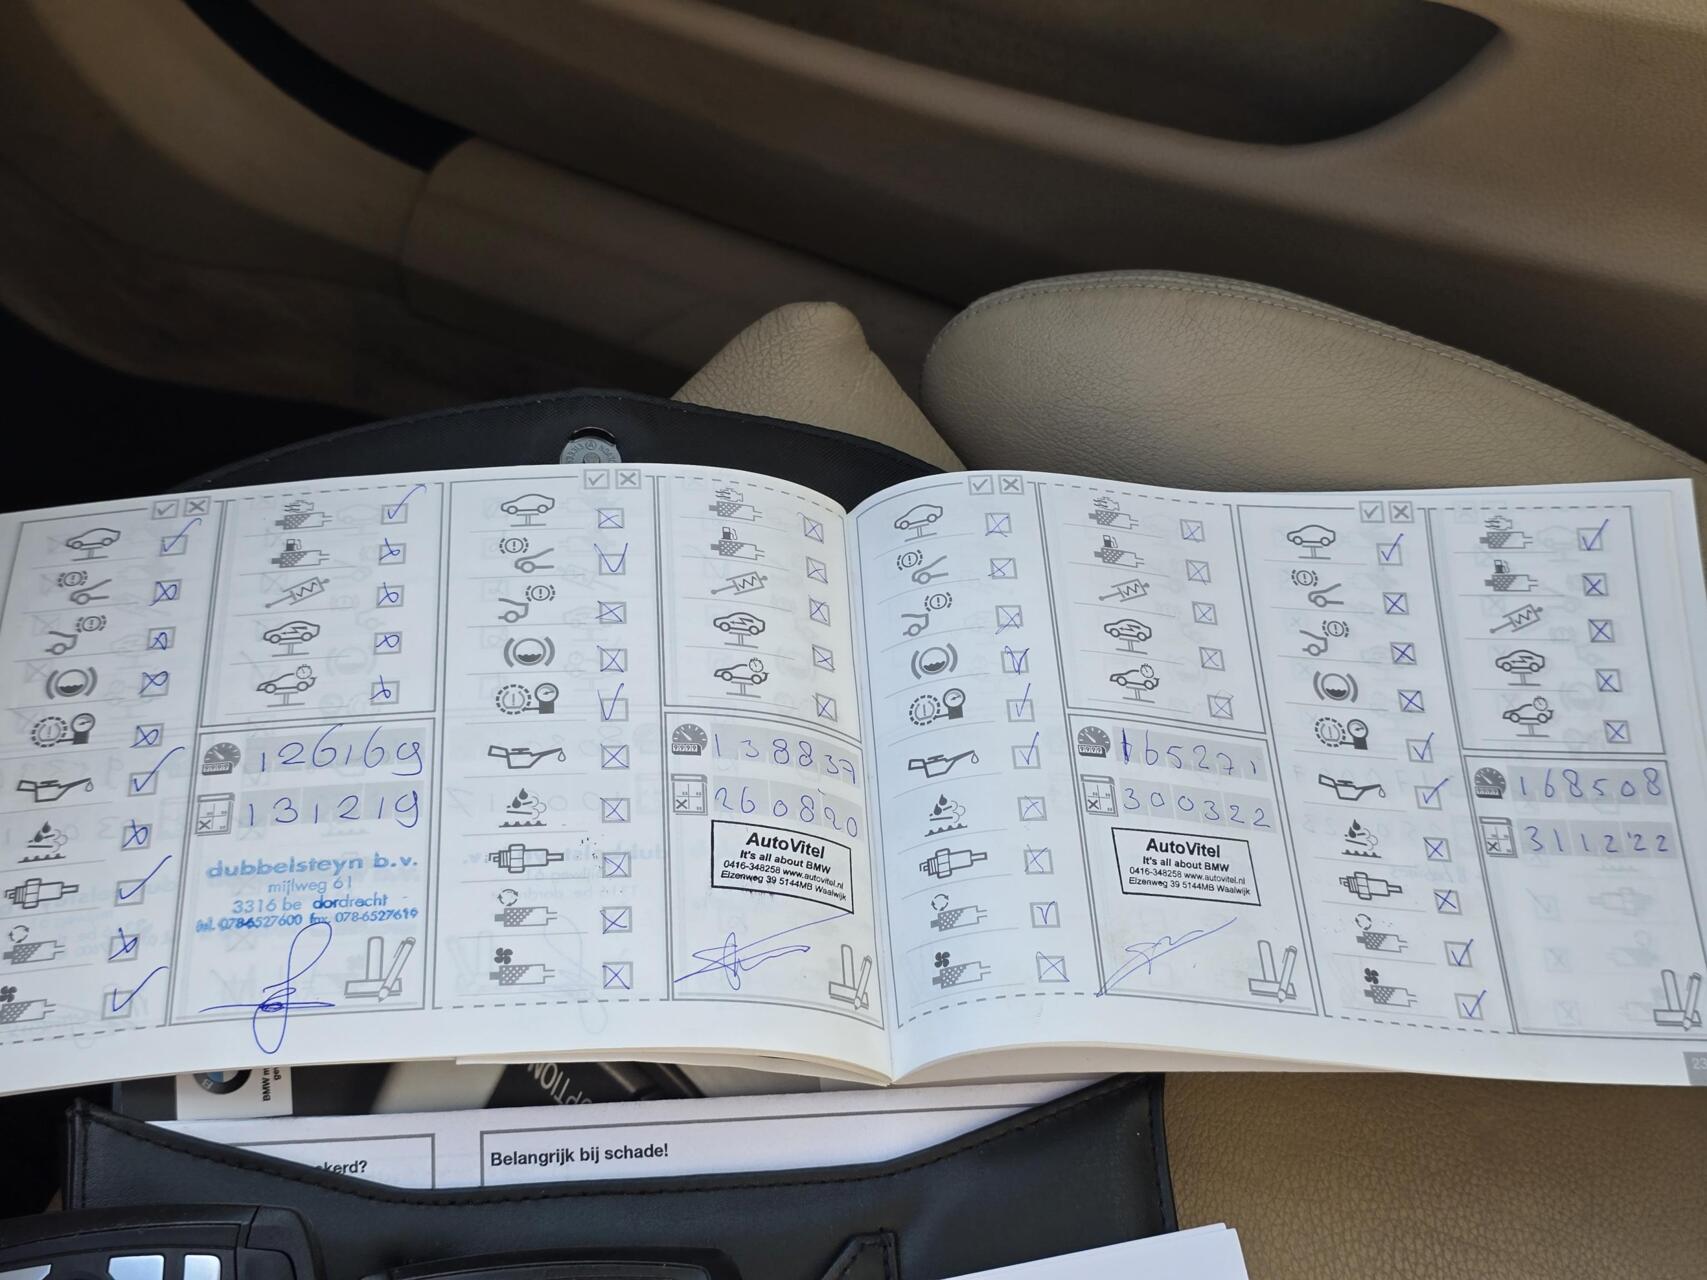 126169
131219
dubbelsteyn b.v.
mijlweg 61
3316 be dordrecht
tel. 078-6527600 fax 078-6527619
138837
260820
AutoVitel
It's all about BMW
0416-348258 www.autovitel.nl
Elzenweg 39 5144MB Waalwijk
165271
300322
AutoVitel
It's all about BMW
0416-348258 www.autovitel.nl
Elzenweg 39 5144MB Waalwijk
168508
311222
23
BMW
OPTION
kerd?
Belangrijk bij schade!